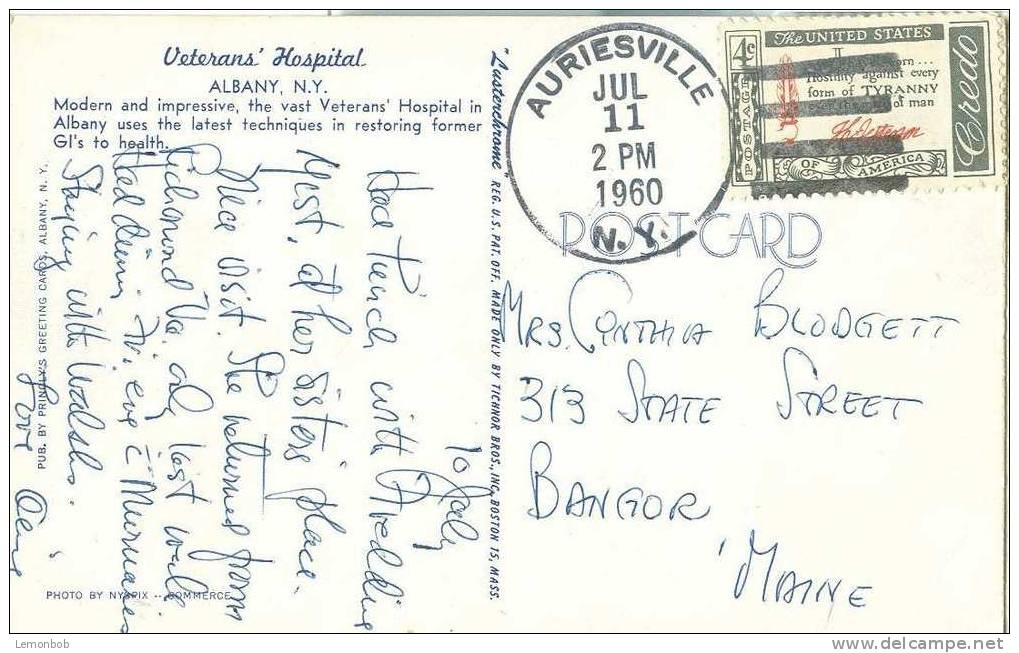 Veterans' Hospital
ALBANY, N.Y.
Modern and impressive, the vast Veterans' Hospital in
Albany uses the latest techniques in restoring former
GI's to health.
10 July
Had Punch with Maddie
yest. at her sister's place.
Nice visit. She returned from
Richmond Va. only last week
Had dinn Fri. eve c̄
Staying with Walshs.
Love
PUB. BY PRINDLY'S GREETING CARDS, ALBANY, N. Y.
PHOTO BY NYSPIX -- COMMERCE
"Lusterchrome" REG. U.S. PAT. OFF. MADE ONLY BY TICHNOR BROS., INC., BOSTON 15, MASS.
AURIESVILLE
JUL
11
2 PM
1960
N. Y.
4c
POSTAGE
The UNITED STATES
OF AMERICA
Hostility against every
form of TYRANNY
over the mind of man
Th Jefferson
Credo
POST CARD
MRS. CYNTHIA BLODGETT
313 STATE STREET
BANGOR
MAINE
Lemonbob
www.delcampe.net